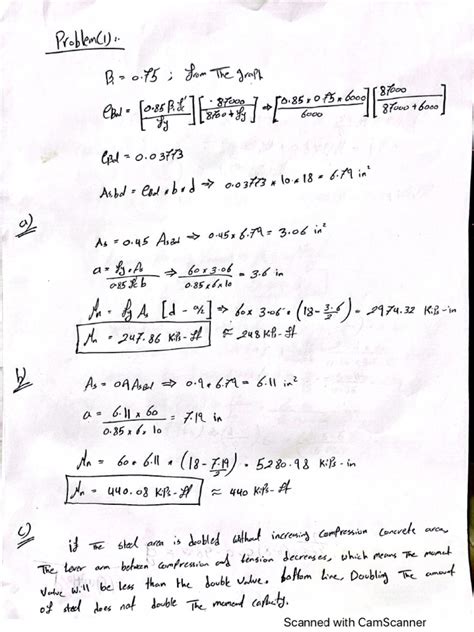 Problem(1):.
β₁ = 0.75 ; from The graph
ρBal = [0.85 β₁ f'c / fy] [87000 / 8700 + fy] ⇒ [0.85 × 0.75 × 6000 / 6000] [87000 / 87000 + 6000]
ρBal = 0.03773
As,bal = ρBal • b • d ⇒ 0.03773 × 10 × 18 = 6.79 in²
a)
As = 0.45 As Bal ⇒ 0.45 × 6.79 = 3.06 in²
a = fy • As / 0.85 f'c b ⇒ 60 × 3.06 / 0.85 × 6 × 10 = 3.6 in
Mn = fy As [d - a/2] ⇒ 60 × 3.06 • (18 - 3.6/2) = 2974.32 Kips-in
Mn = 247.86 Kips-ft ≈ 248 Kips-ft
b)
As = 0.9 As Bal ⇒ 0.9 • 6.79 = 6.11 in²
a = 6.11 × 60 / 0.85 × 6 × 10 = 7.19 in
Mn = 60 • 6.11 • (18 - 7.19/2) = 5280.98 Kips-in
Mn = 440.08 Kips-ft ≈ 440 Kips-ft
c)
if The steel area is doubled without increasing compression concrete area
The lever arm between compression and tension decreases, which means The moment
Value will be less than the double value. bottom line, Doubling The amount
of steel does not double The moment capacity.
Scanned with CamScanner